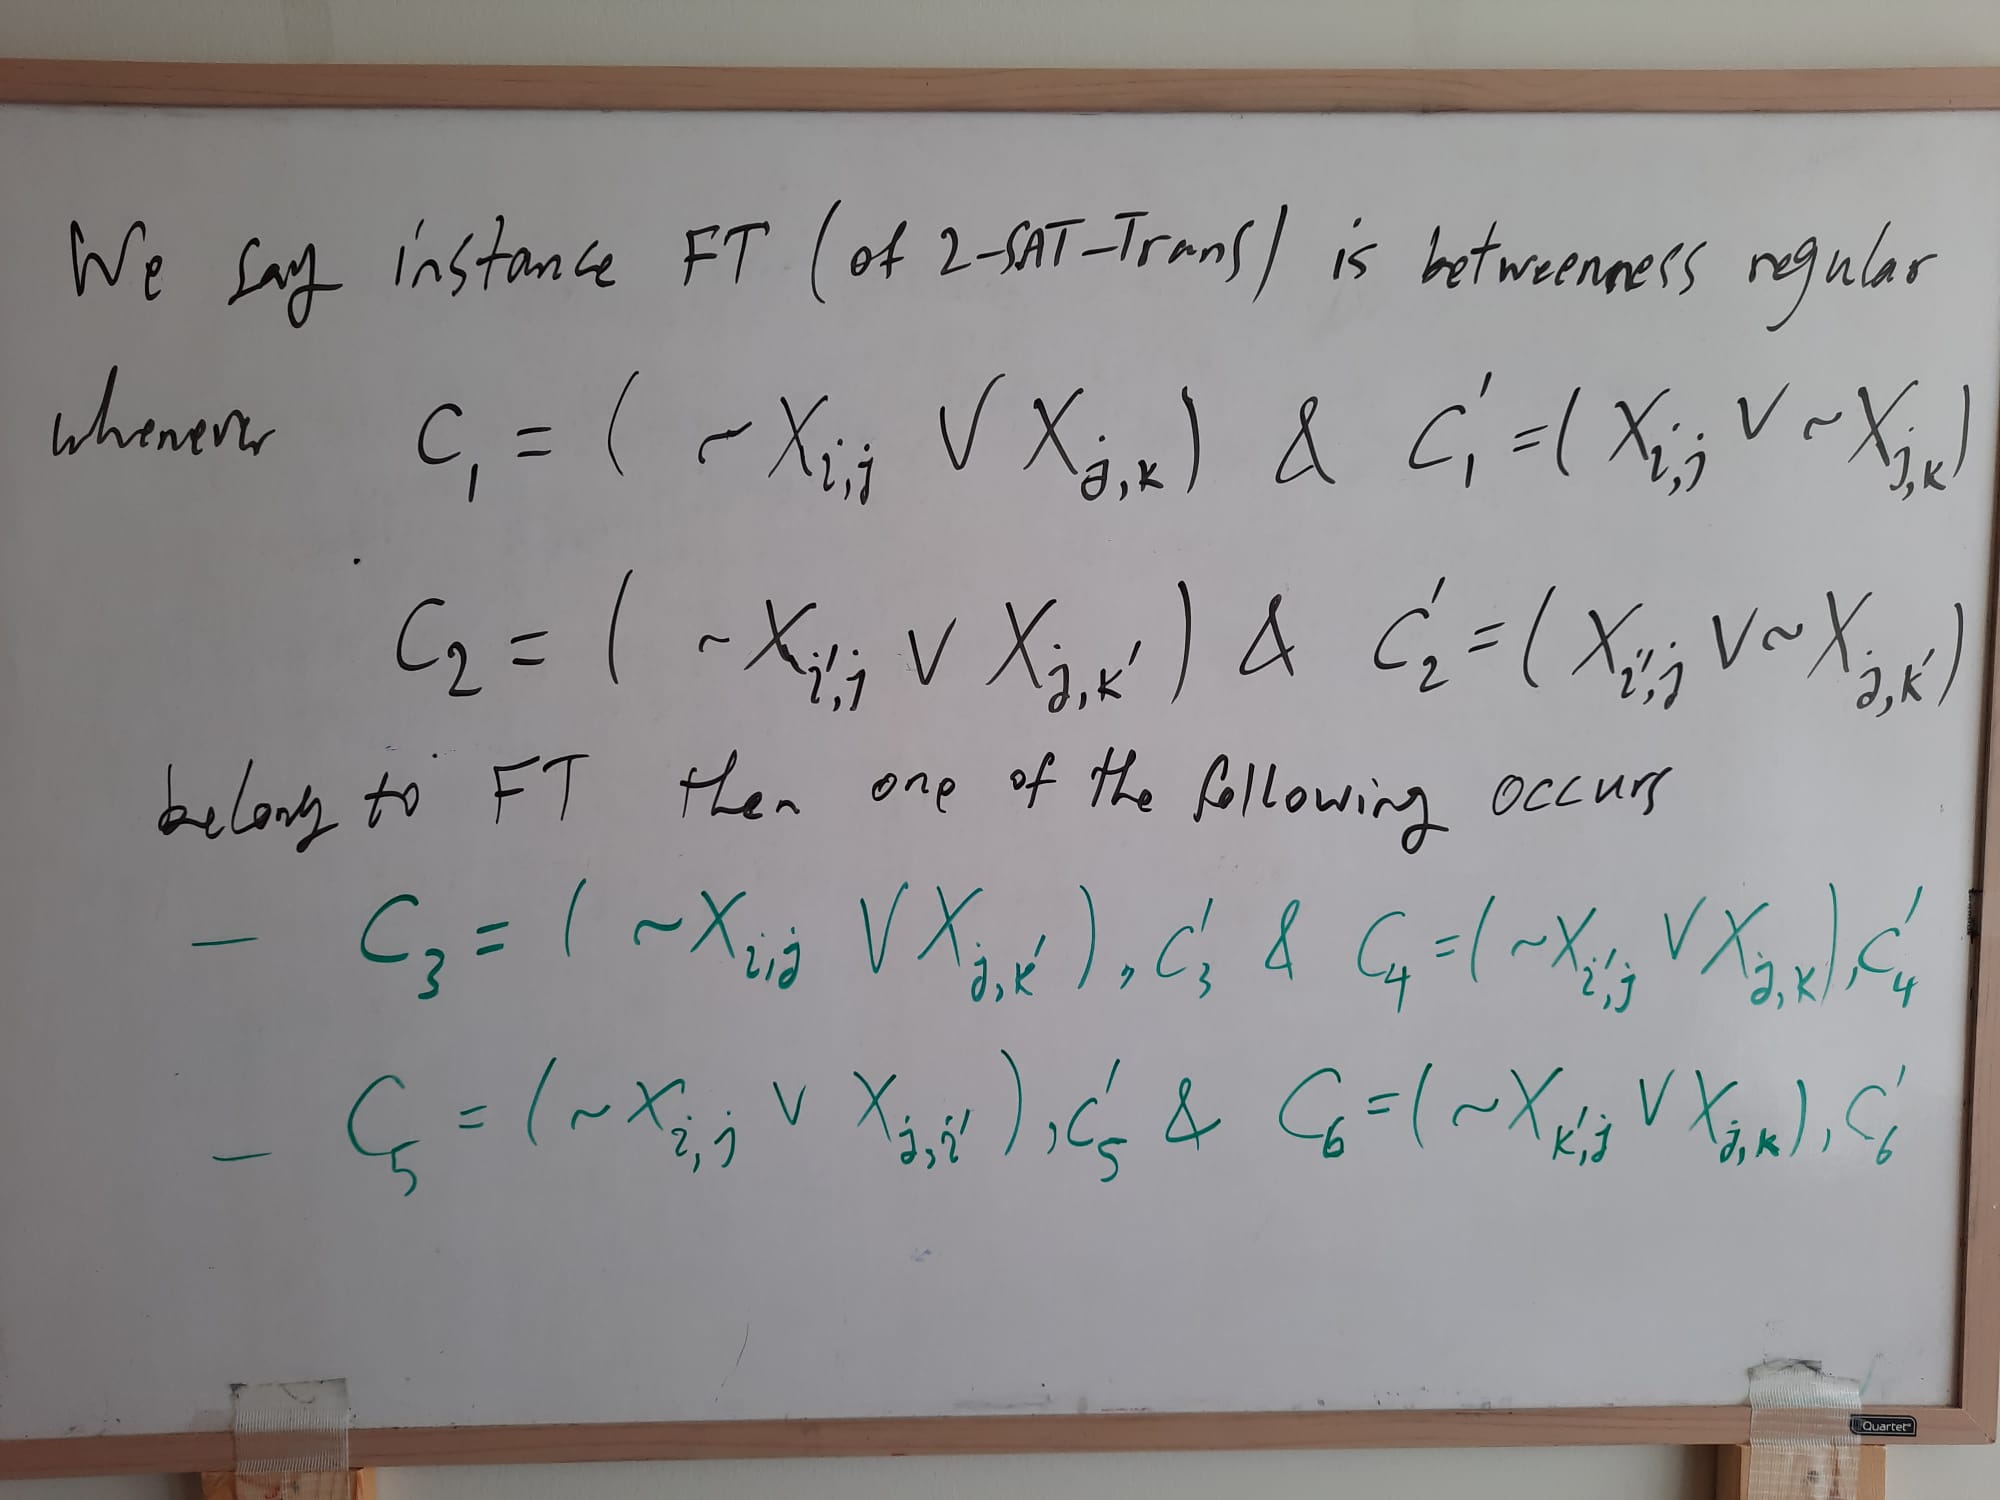 We say instance FT (of 2-SAT-Trans) is betweenness regular
whenever C₁ = ( ~X_{i,j} ∨ X_{j,k} ) & C₁' = ( X_{i,j} ∨ ~X_{j,k} )
C₂ = ( ~X_{i',j} ∨ X_{j,k'} ) & C₂' = ( X_{i',j} ∨ ~X_{j,k'} )
belong to FT then one of the following occurs
— C₃ = ( ~X_{i,j} ∨ X_{j,k'} ), C₃' & C₄ = ( ~X_{i',j} ∨ X_{j,k} ), C₄'
— C₅ = ( ~X_{i,j} ∨ X_{j,i'} ), C₅' & C₆ = ( ~X_{k',j} ∨ X_{j,k} ), C₆'
Quartet